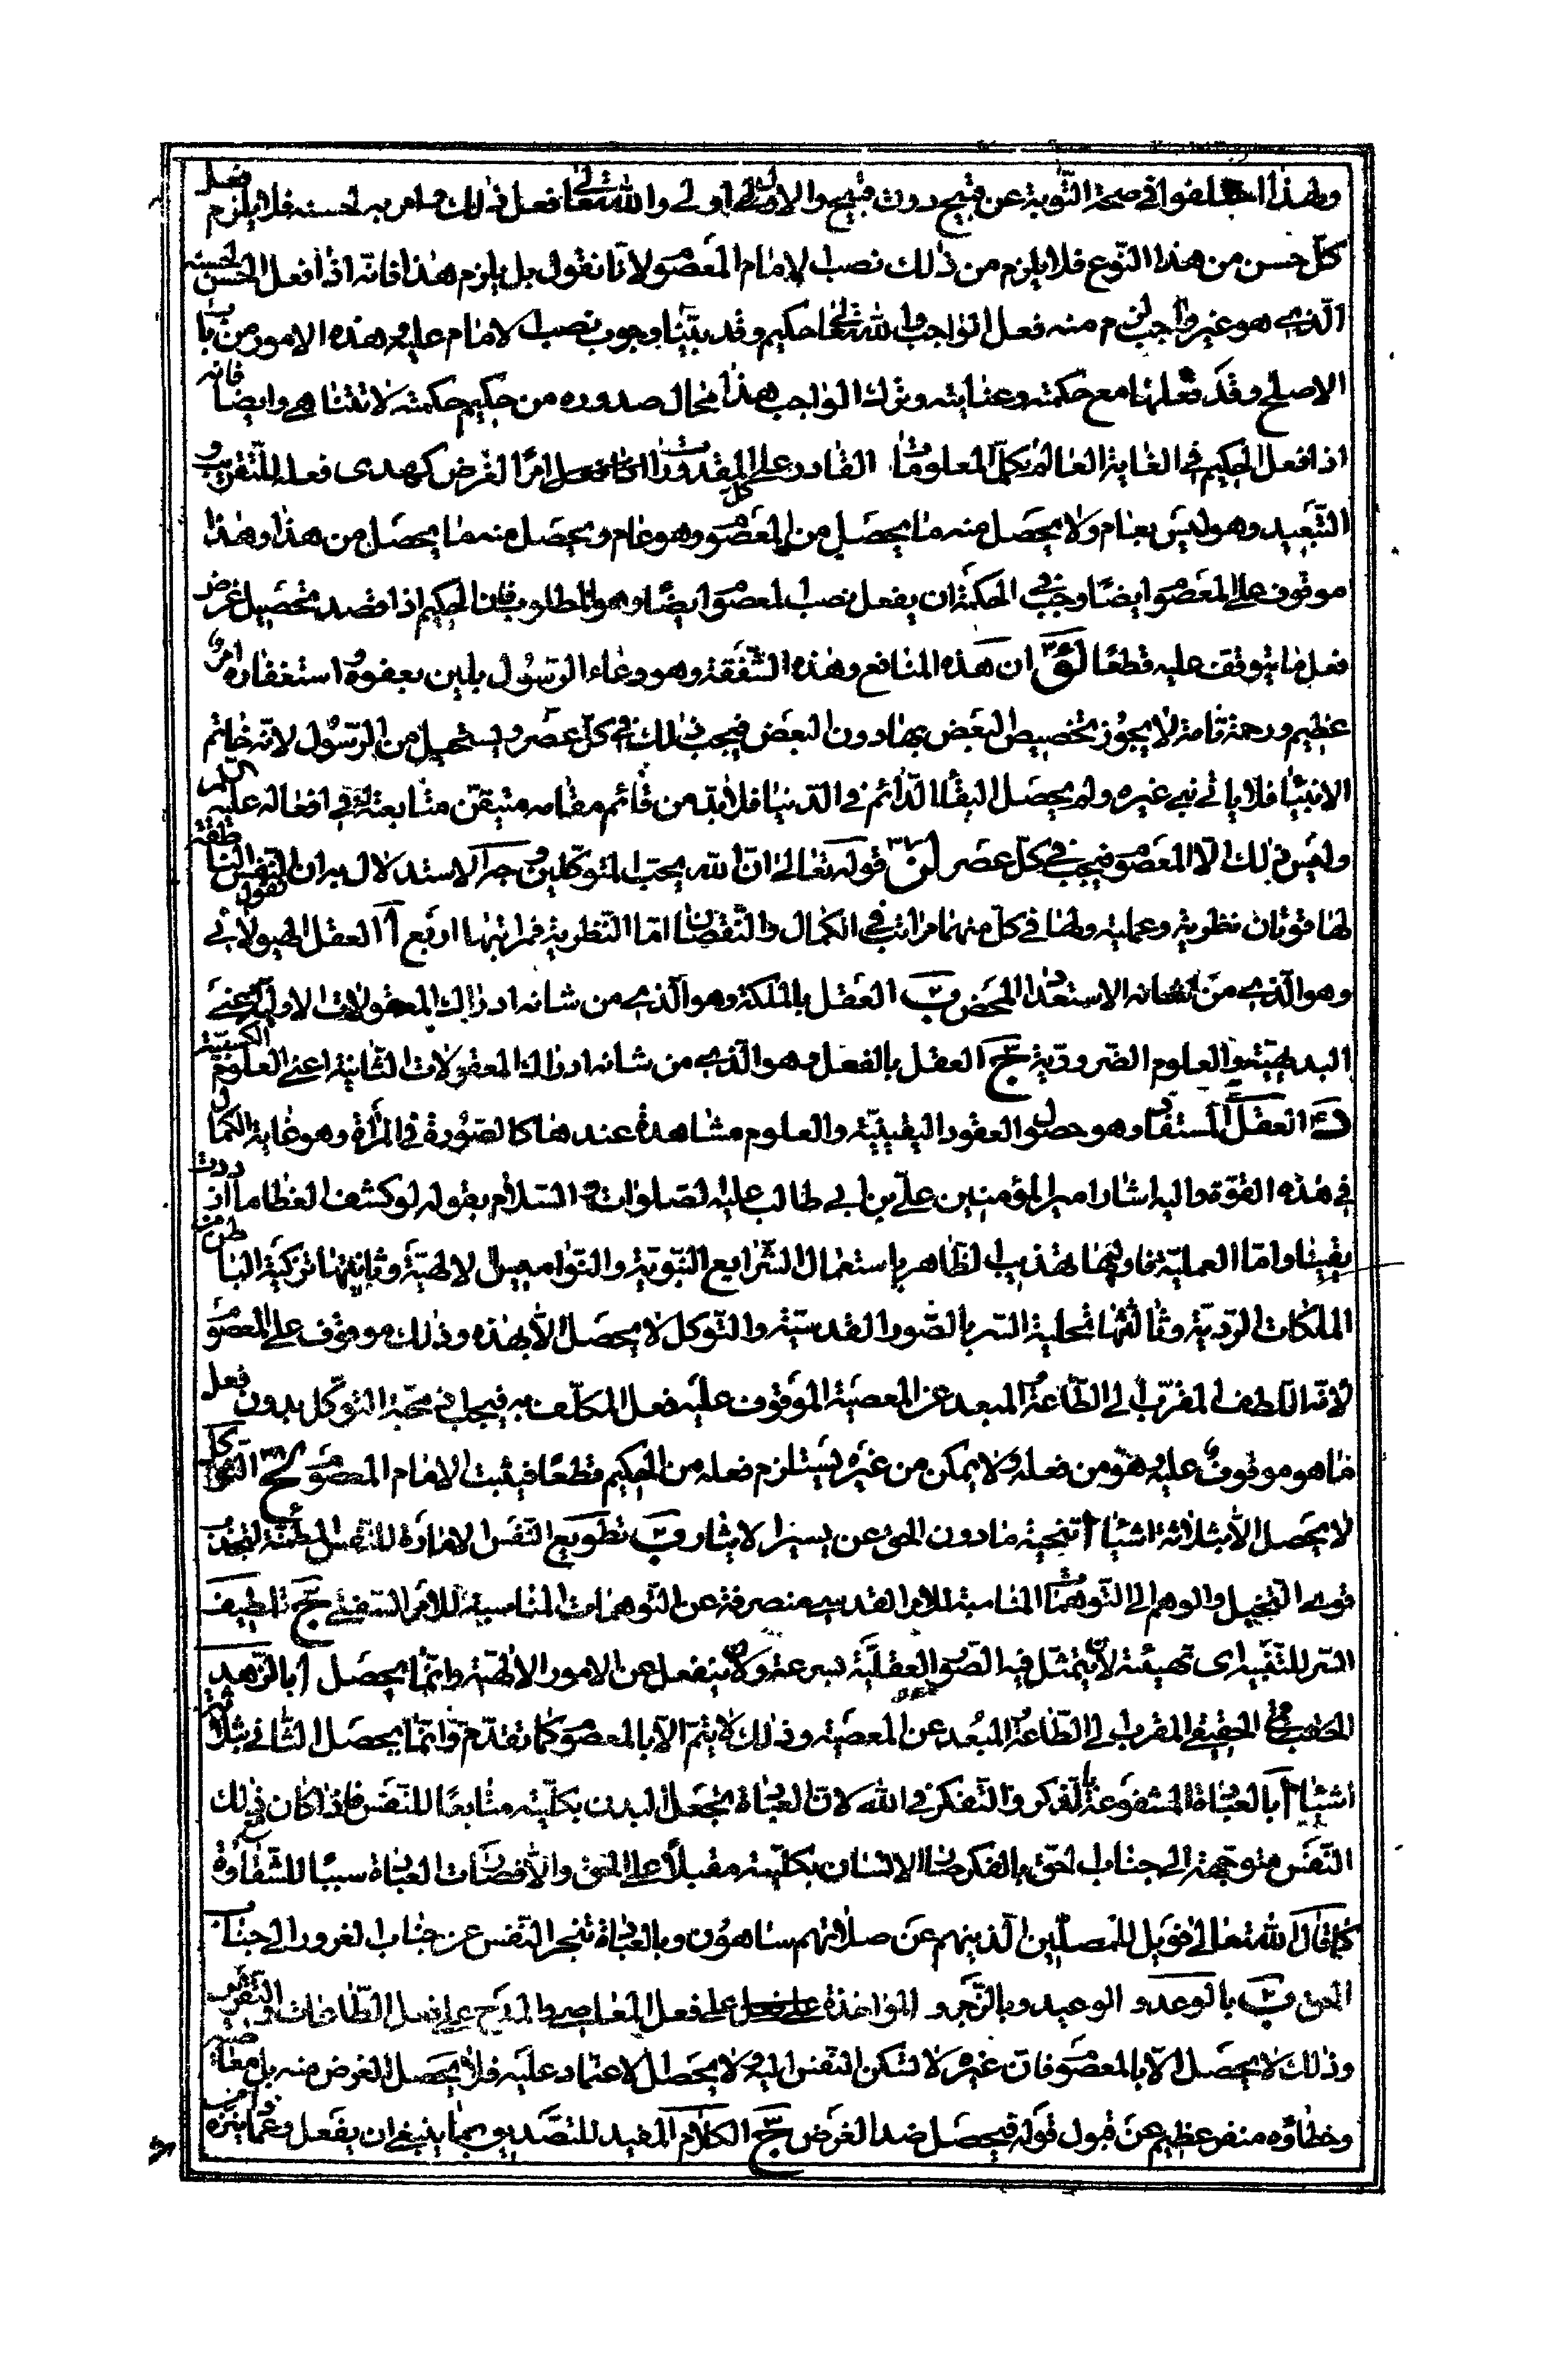 ولهذا اختلفوا في صحة التّوبة عن قبيح دون قبيح والاولى اولى والله تعالى فعل ذلك صامر به لحسنه فلا يلزم فعل
كلّ حسن من هذا النّوع فلا يلزم من ذلك نصب الامام المعصوم لانا نقول بل يلزم هذا فانّه اذا فعل الحسن لحسنه
الّذي هو غير واجب لزم منه فعل الواجب والله تعالى حكيم وقد بيّنا وجوب نصب الامام عليه وهذه الامور من باب
الاصلح وقد فعلها مع حكمته وعنايته وترك الواجب هذا محال صدوره من حكيم حكمته لا تتناهى وايضا فانه
اذا فعل الحكيم في الغاية العالم بكلّ المعلومات القادر على كل المقدورات امرا لغرض كهدى فعله للتّقريب و
التّبعيد وهو ليس بعام ولا يحصل منه ما يحصل من المعصوم وهو عام ويحصل منه ما يحصل من هذا وهذا
موقوف على المعصوم ايضا وجب في الحكمة ان يفعل نصب المعصوم ايضا وهو المطلوب فان الحكيم اذا قصد تحصيل غرض
فعل ما يتوقف عليه قطعا ان هذه المنافع وهذه الشّفقة وهو دعاء الرّسول بلين بعفوه واستغفاره امر
عظيم ورحمة تامة لا يجوز تخصيص البعض بها دون البعض فيجب ذلك في كلّ عصر ويستحيل من الرّسول لانّه خاتم
الانبياء فلا ياتي نبي غيره ولم يحصل البقاء الدّائم في الدّنيا فلا بدّ من قائم مقامه متيقّن متابعته له في افعاله عليه السلم
وليس ذلك الّا المعصوم فيجب في كلّ عصر قوله تعالى انّ الله يحبّ المتوكّلين وجه الاستدلال به ان نقول النّفس الناطقة
لها قوّتان نظرية وعملية ولها في كلّ منهما مراتب في الكمال والنّقصان امّا النّظرية فمراتبها اربع آ العقل الهيولاني
وهو الّذي من شانه الاستعداد المحض ب العقل بالملكة وهو الّذي من شانه ادراك المعقولات الاولى يعني
البديهيّة والعلوم الضّرورية ج العقل بالفعل وهو الّذي من شانه ادراك المعقولات الثّانية اعني العلوم الكسبيّة
د العقل المستفاد وهو حصول العقود اليقينيّة والعلوم مشاهدة عندها كالصّورة في المرآة وهو غاية الكمال
في هذه القوّة واليه اشار امير المؤمنين عليّ بن ابي طالب عليه الصّلوات والسّلام بقوله لو كشف الغطا ما ازددت
يقينا وامّا العمليّة فاوليها تهذيب الظّاهر باستعمال الشّرايع النّبويّة والنّواميس الالهيّة وثانيتها تزكية الباطن من
الملكات الرّديّة وثالثتها تحلية السّر بالصّور القدسيّة والتّوكل لا يحصل الّا بهذه وذلك موقوف على المعصوم
لانّه اللّطف المقرّب الى الطّاعة المبعد عن المعصية الموقوف عليه فعل المكلّف به فيجب اذ محبّة التوكّل بدون فعل
ما هو موقوف عليه وهو من فعله ولا يمكن من غيره يستلزم فعله من الحكيم قطعا فيثبت الامام المعصوم التّوكل
لا يحصل الّا بثلاثة اشياء آ تنحية ما دون الحقّ عن الايثار ب تطويع النّفس الامّارة للنّفس المطمئنّة لتجذب
قوى التّخيل والوهم الى التّوهّمات المناسبة للامر القدسي منصرفة عن التّوهمات المناسبة للامر السّفلي ج تلطيف
السّر للتّنبيه اى تهيئته لان يتمثل فيه الصّور العقليّة بسرعة ولان ينفعل عن الامور الالهيّة وانّما يحصل آ بالزّهد
الحقيقي المقرب الى الطّاعة المبعد عن المعصية وذلك لا يتمّ الّا بالمعصوم كما تقدّم وانّما يحصل الثّاني بثلاثة
اشياء آ بالعبادة المشفوعة بالفكر والتّفكر في الله لان العبادة تجعل البدن بكلّيته متابعا للنّفس فاذا كان ذلك مع
النّفس متوجهة الى جناب الحقّ بالفكر صار الانسان بكلّيته مقبلا على الحق والّا فصارت العبادة سببا للشّقاوة
كما قال الله تعالى فويل للمصلّين الّذين هم عن صلاتهم ساهون وبالعبادة تنجر النّفس عن جناب الغرور الى جناب
الحق ب بالوعد و الوعيد وبالزّجر و المؤاخذة على فعل المعاصي والمدح على فعل الطّاعات والتّقريب
وذلك لا يحصل الّا بالمعصوم فان غيره لا تسكن النّفس اليه ولا يحصل الاعتماد عليه فلا يحصل الغرض منه بل معاصيه
وخطاؤه منفر عظيم عن قبول قوله فيحصل ضد الغرض ج الكلام المفيد للتّصديق بما ينبغي ان يفعل وعمّا ينزه